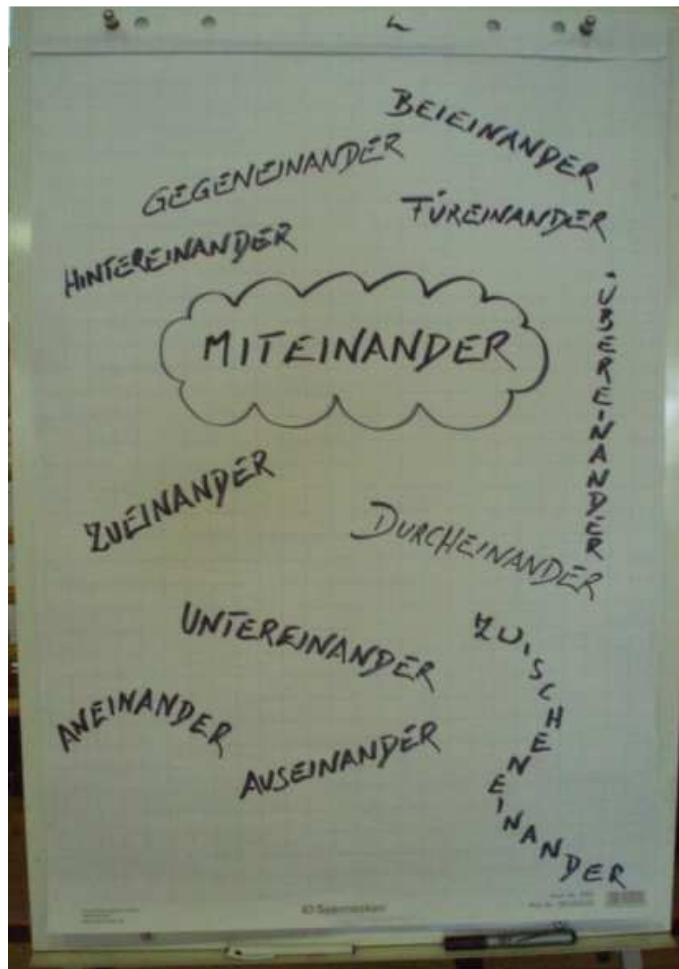 BEIEINANDER
GEGENEINANDER
FÜREINANDER
HINTEREINANDER
ÜBEREINANDER
MITEINANDER
ZUEINANDER
DURCHEINANDER
UNTEREINANDER
ZWISCHENEINANDER
ANEINANDER
AUSEINANDER